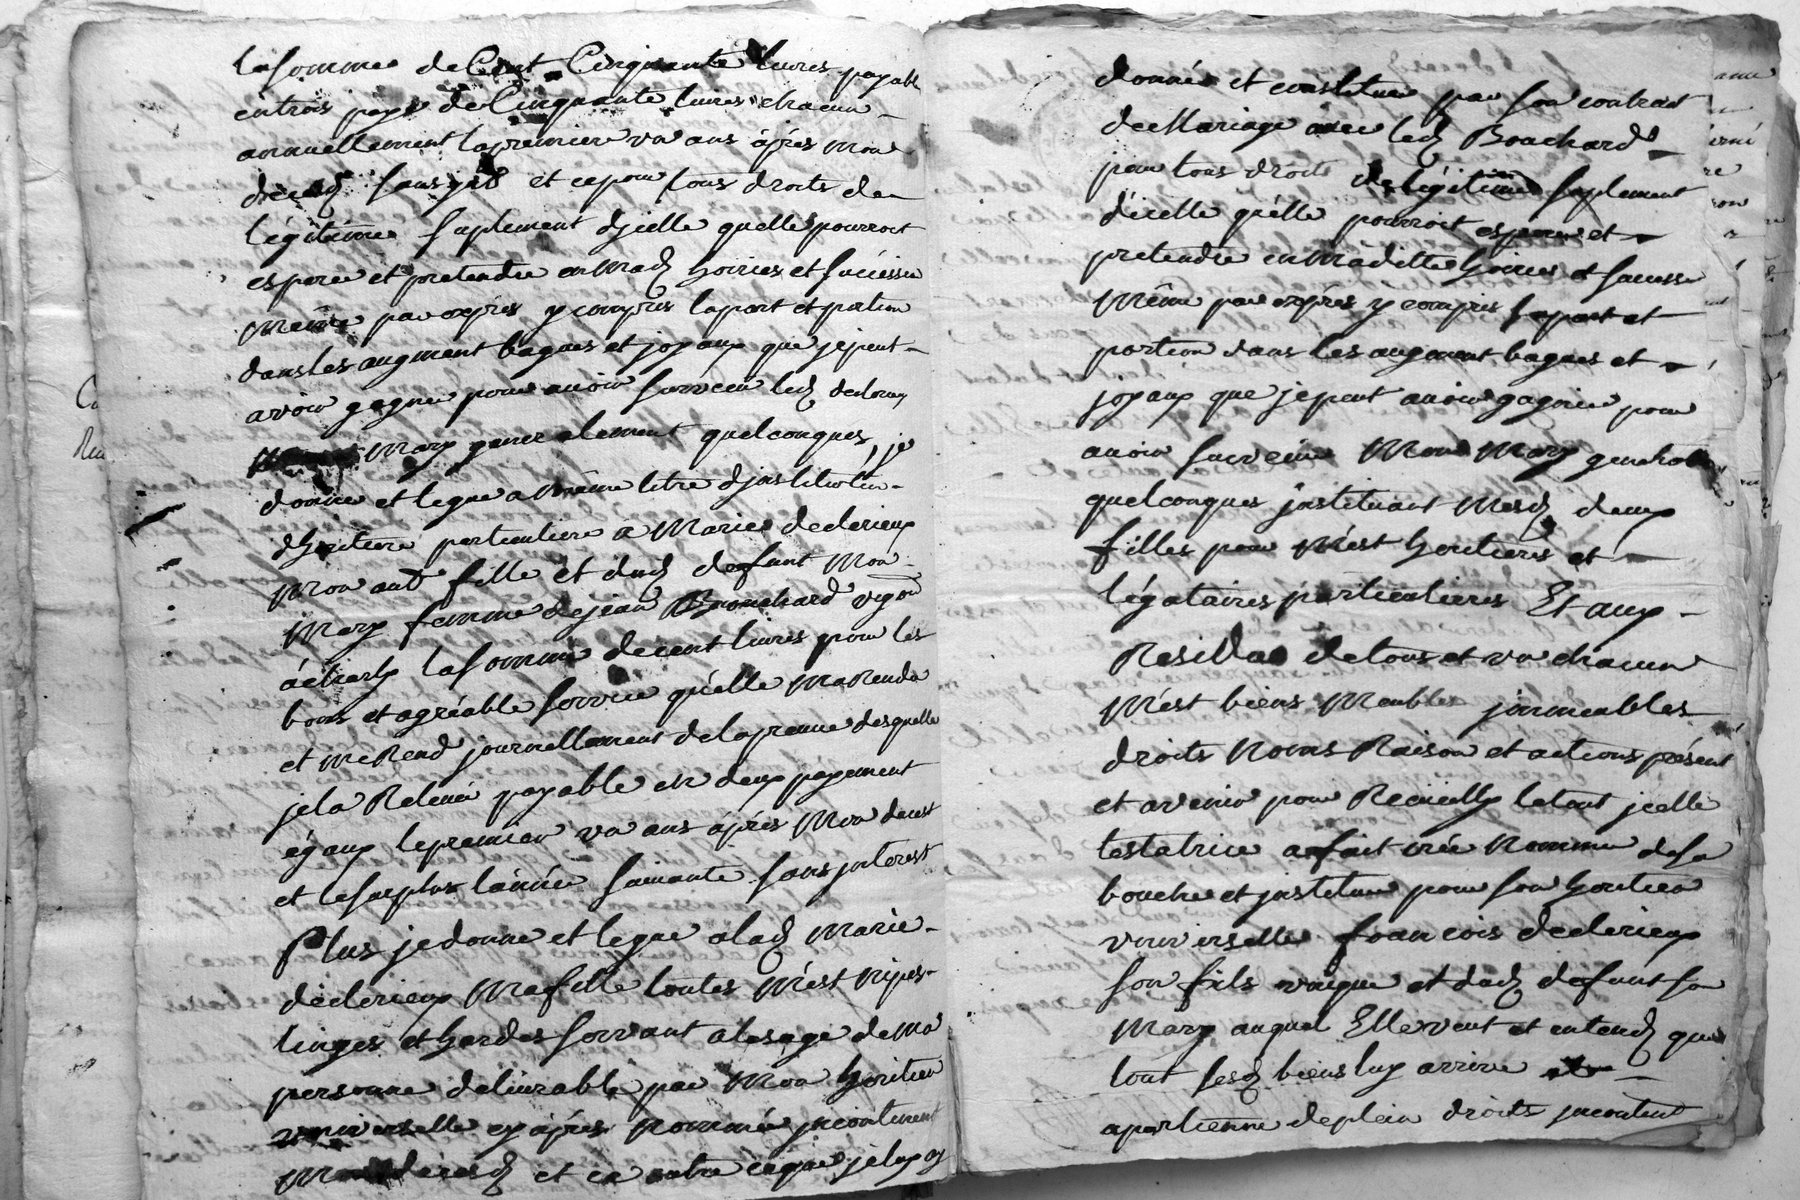 la somme de Cent Cinquante livres payable
en trois pages de Cinquante livres chacun
annuellement la premiere un ans aprés mon
deced sans et ce pour tous droits de
légitime suplement d'jcelle quelle pourroit
espere et pretendre en mad hoiries et suession
même par exprés y compris la part et portion
dans les augment bagues et joyaux que je peut
avoir gagné pour avoir surveçu led declerieux
mary generalement quelconques, je
donne et legue a même titre d'jnstitution
d'heritiere particuliere a Marie declerieux
mon autre fille et dud defunt mon
mary femme de jean Bouchard
la somme de cent livres pour les
bons et agréable service qu'elle ma Rendu
et me Rend journellement de la preuve desquelle
je la Relevée payable en deux payement
égaux le premier un ans aprés mon decest
et le surplus lannée suivante sans jnterest
Plus je donne et legue a lad Marie
declerieux ma fille toutes mést nipes
linges et hardes servant a lusage de ma
personne delivrable par mon heritier
universelle cy aprés nommée jncontinent
mon deced et ce outre ce que je luy ay
donné et constitue par son contrat
de Mariage avec led Bouchard
pour tous droits de légitime suplement
d'icelle qu'elle pourroit espere et
pretendre en madite hoiries et suession
même par exprés y compris la part et
portion dans les augment bagues et
joyaux que je peut avoir gagnée pour
avoir surveçu mon mary
quelconques jnstituant mesd deux
filles pour mést heritieres et
légataires particulieres Et aux
Residu de tous et un chacun
mést biens meubles jmmeubles
droits noms Raison et actions présent
et avenir pour Recuillir le tout jcelle
testatrice a fait crée nommé de sa
bouche et jnstitue pour son heritier
universelle francois declerieux
son fils unique et dud defunt son
mary auquel Elle veut et entend que
tout sesd biens luy arrive
apartienne de plein droits jncontient